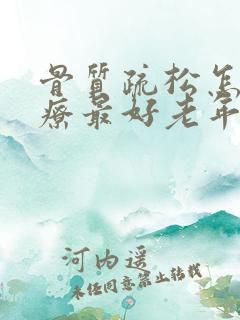 骨質疏松怎
療最好老年
河内遥
未经同意禁止转载